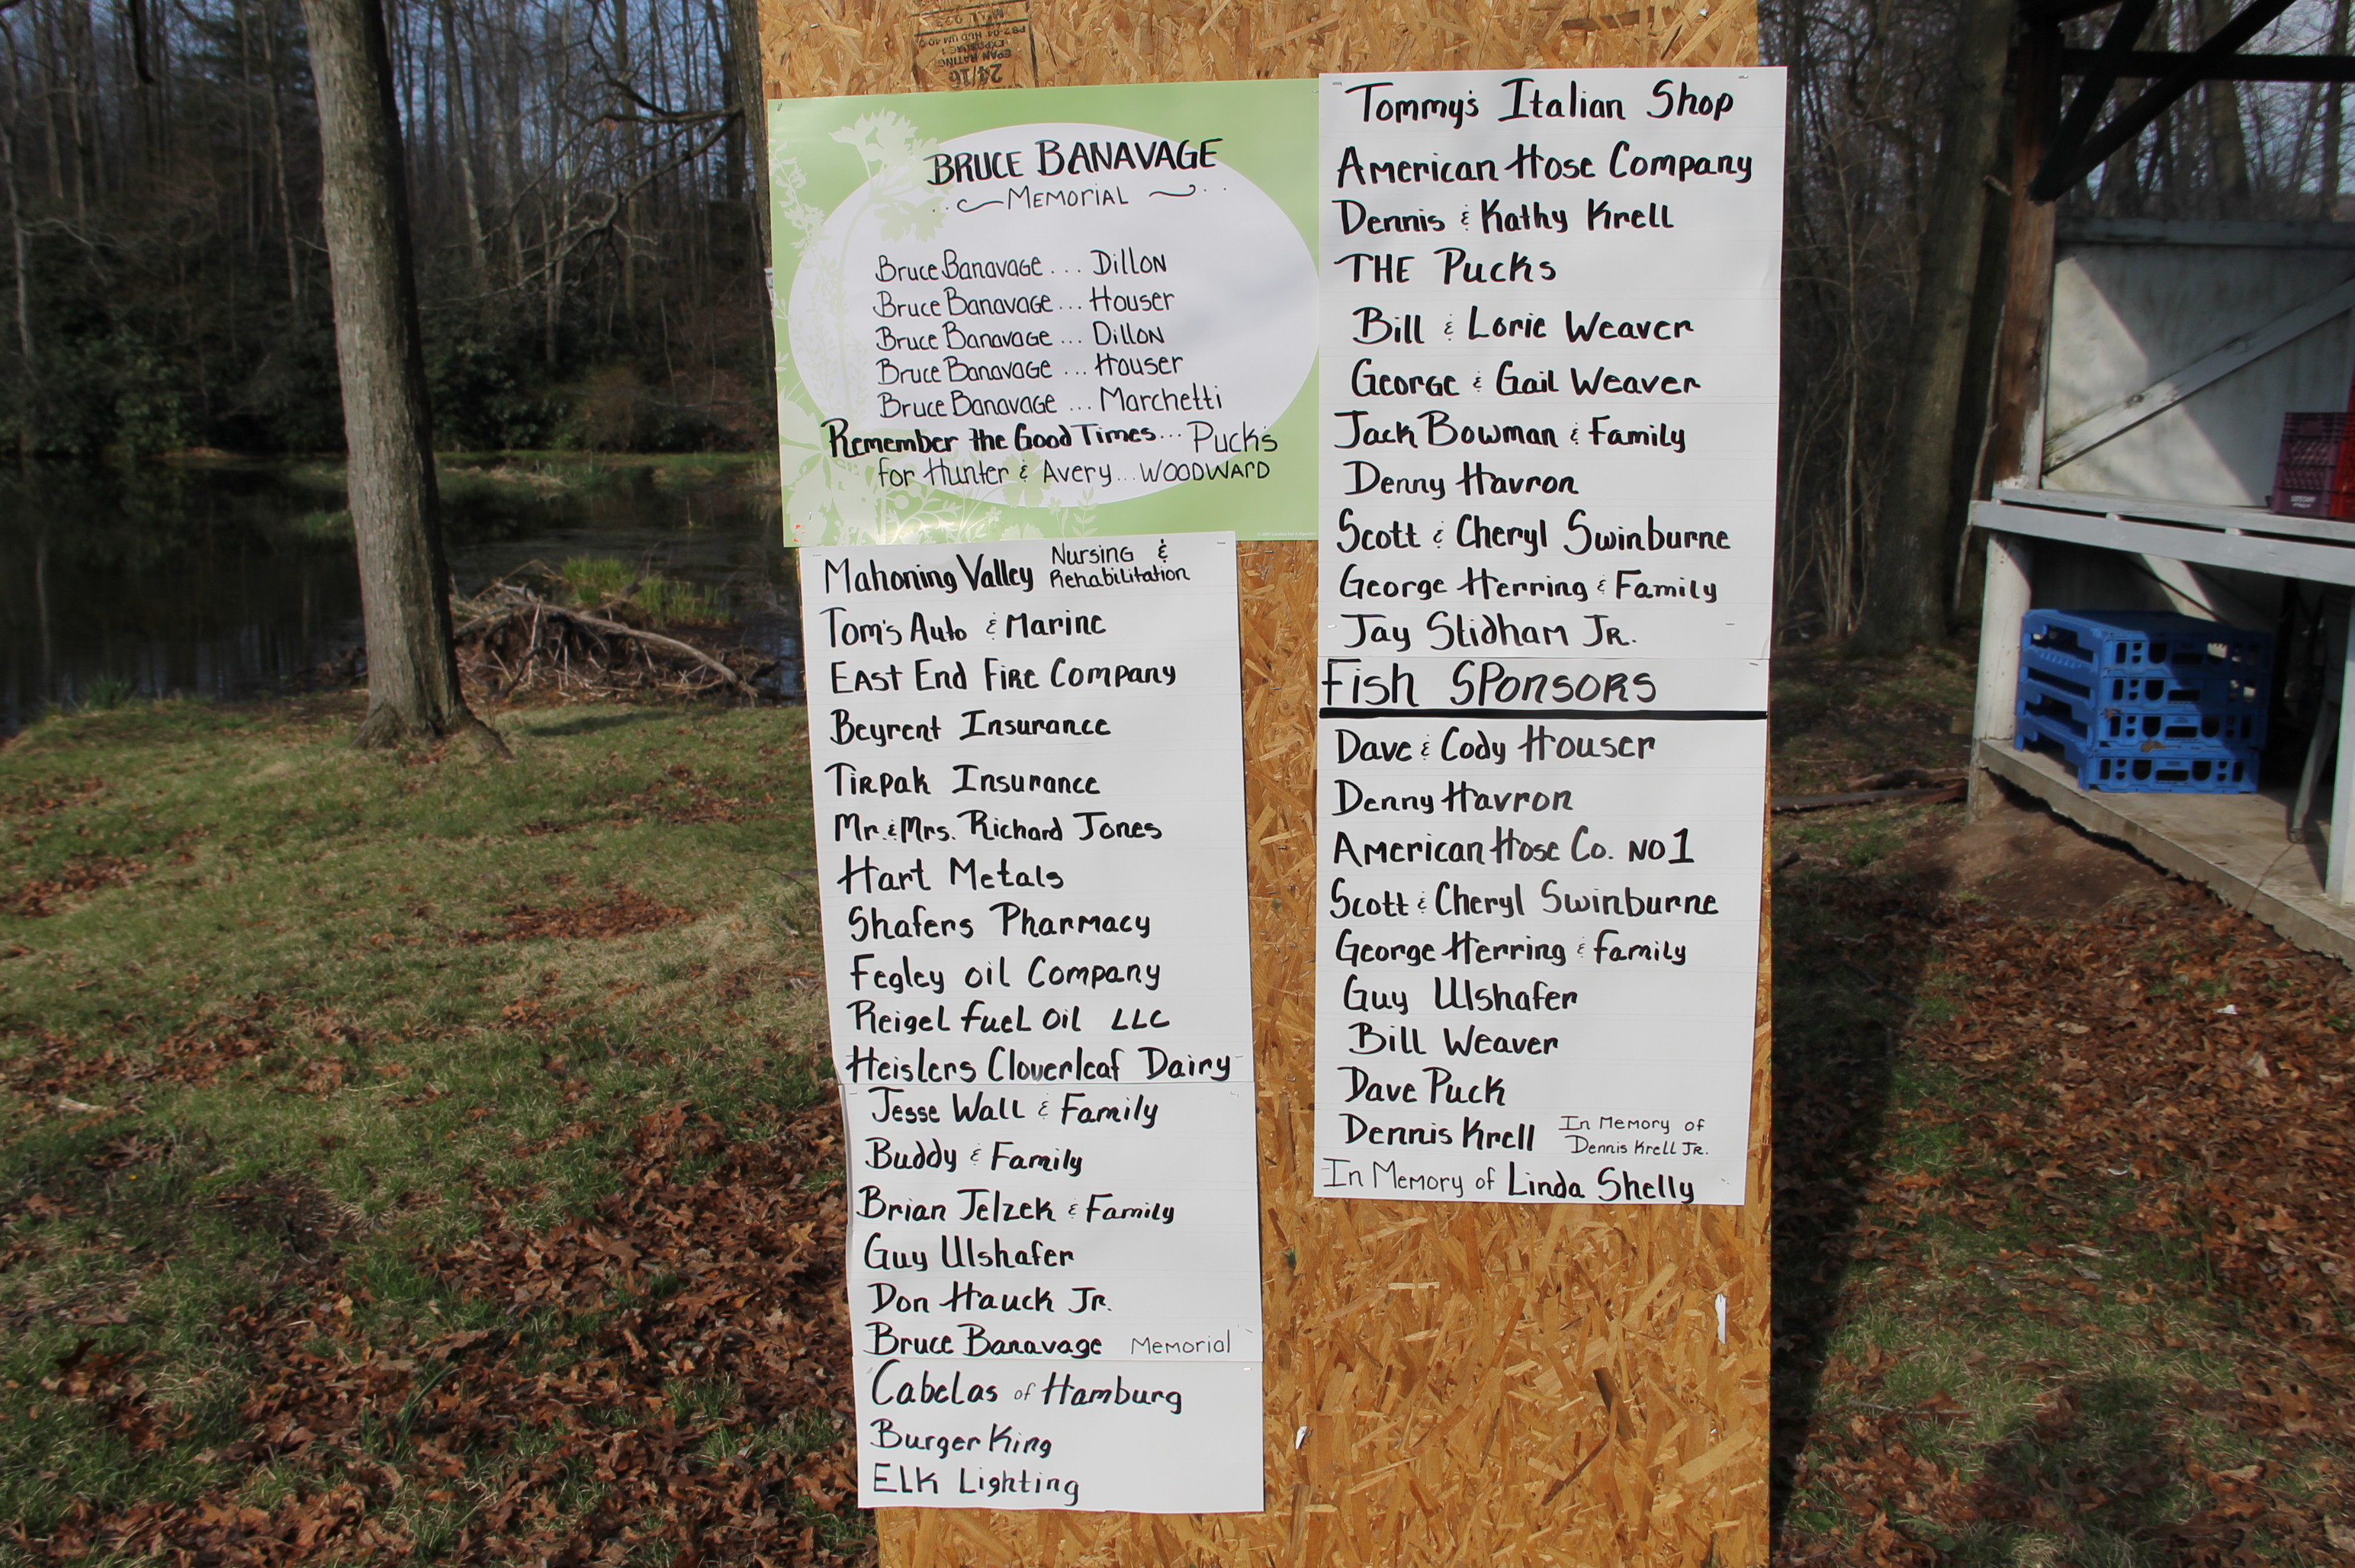 24/16
BRUCE BANAVAGE
MEMORIAL
Bruce Banavage ... Dillon
Bruce Banavage ... Houser
Bruce Banavage ... Dillon
Bruce Banavage ... Houser
Bruce Banavage ... Marchetti
Remember the Good Times... Puck's
for Hunter & Avery... WOODWARD
Mahoning Valley Nursing & Rehabilitation
Tom's Auto & Marine
East End Fire Company
Beyrent Insurance
Tirpak Insurance
Mr. & Mrs. Richard Jones
Hart Metals
Shafers Pharmacy
Fegley oil Company
Reigel Fuel Oil LLC
Heislers Cloverleaf Dairy
Jesse Wall & Family
Buddy & Family
Brian Jelzek & Family
Guy Ulshafer
Don Hauck Jr.
Bruce Banavage Memorial
Cabelas of Hamburg
Burger King
ELK Lighting
Tommy's Italian Shop
American Hose Company
Dennis & Kathy Krell
THE Pucks
Bill & Lorie Weaver
George & Gail Weaver
Jack Bowman & Family
Denny Havron
Scott & Cheryl Swinburne
George Herring & Family
Jay Slidham JR.
Fish SPonsors
Dave & Cody Houser
Denny Havron
American Hose Co. NO 1
Scott & Cheryl Swinburne
George Herring & Family
Guy Ulshafer
Bill Weaver
Dave Puck
Dennis Krell In Memory of
Dennis Krell JR.
In Memory of Linda Shelly